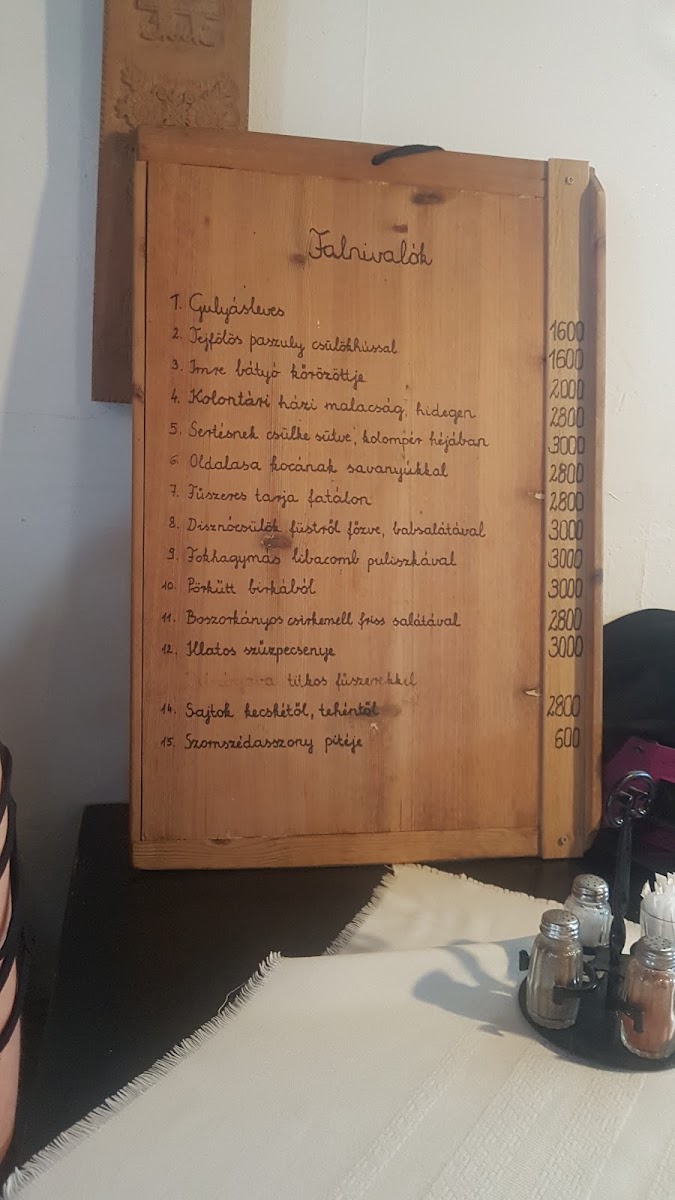 Falnivalók
1. Gulyásleves 1600
2. Tejfölös paszuly csülökhússal 1600
3. Imre bátyó kőrözöttje 2000
4. Kolontári házi malacság, hidegen 2800
5. Sertésnek csülke sütve, kolompér héjában 3000
6. Oldalasa kocának savanyúkkal 2800
7. Fűszeres tarja fatálon 2800
8. Disznócsülök füstről főzve, babsalátával 3000
9. Fokhagymás libacomb puliszkával 3000
10. Pörkütt birkából 3000
11. Boszorkányos csirkemell friss salátával 2800
12. Illatos szűzpecsenye 3000
titkos fűszerekkel
14. Sajtok kecskétől, tehéntől 2800
15. Szomszédasszony pitéje 600